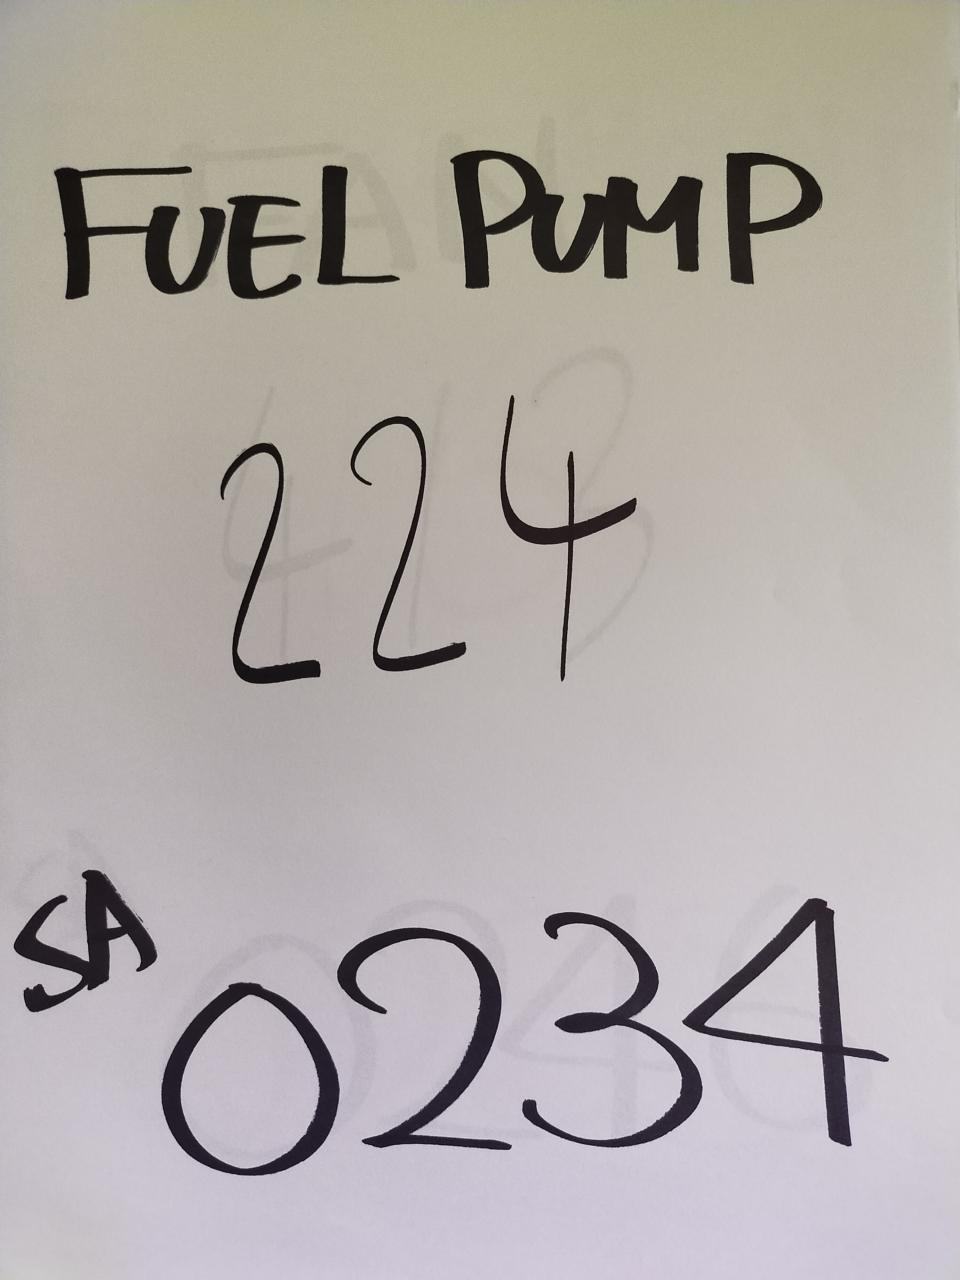 FUEL PUMP
224
SA 0234